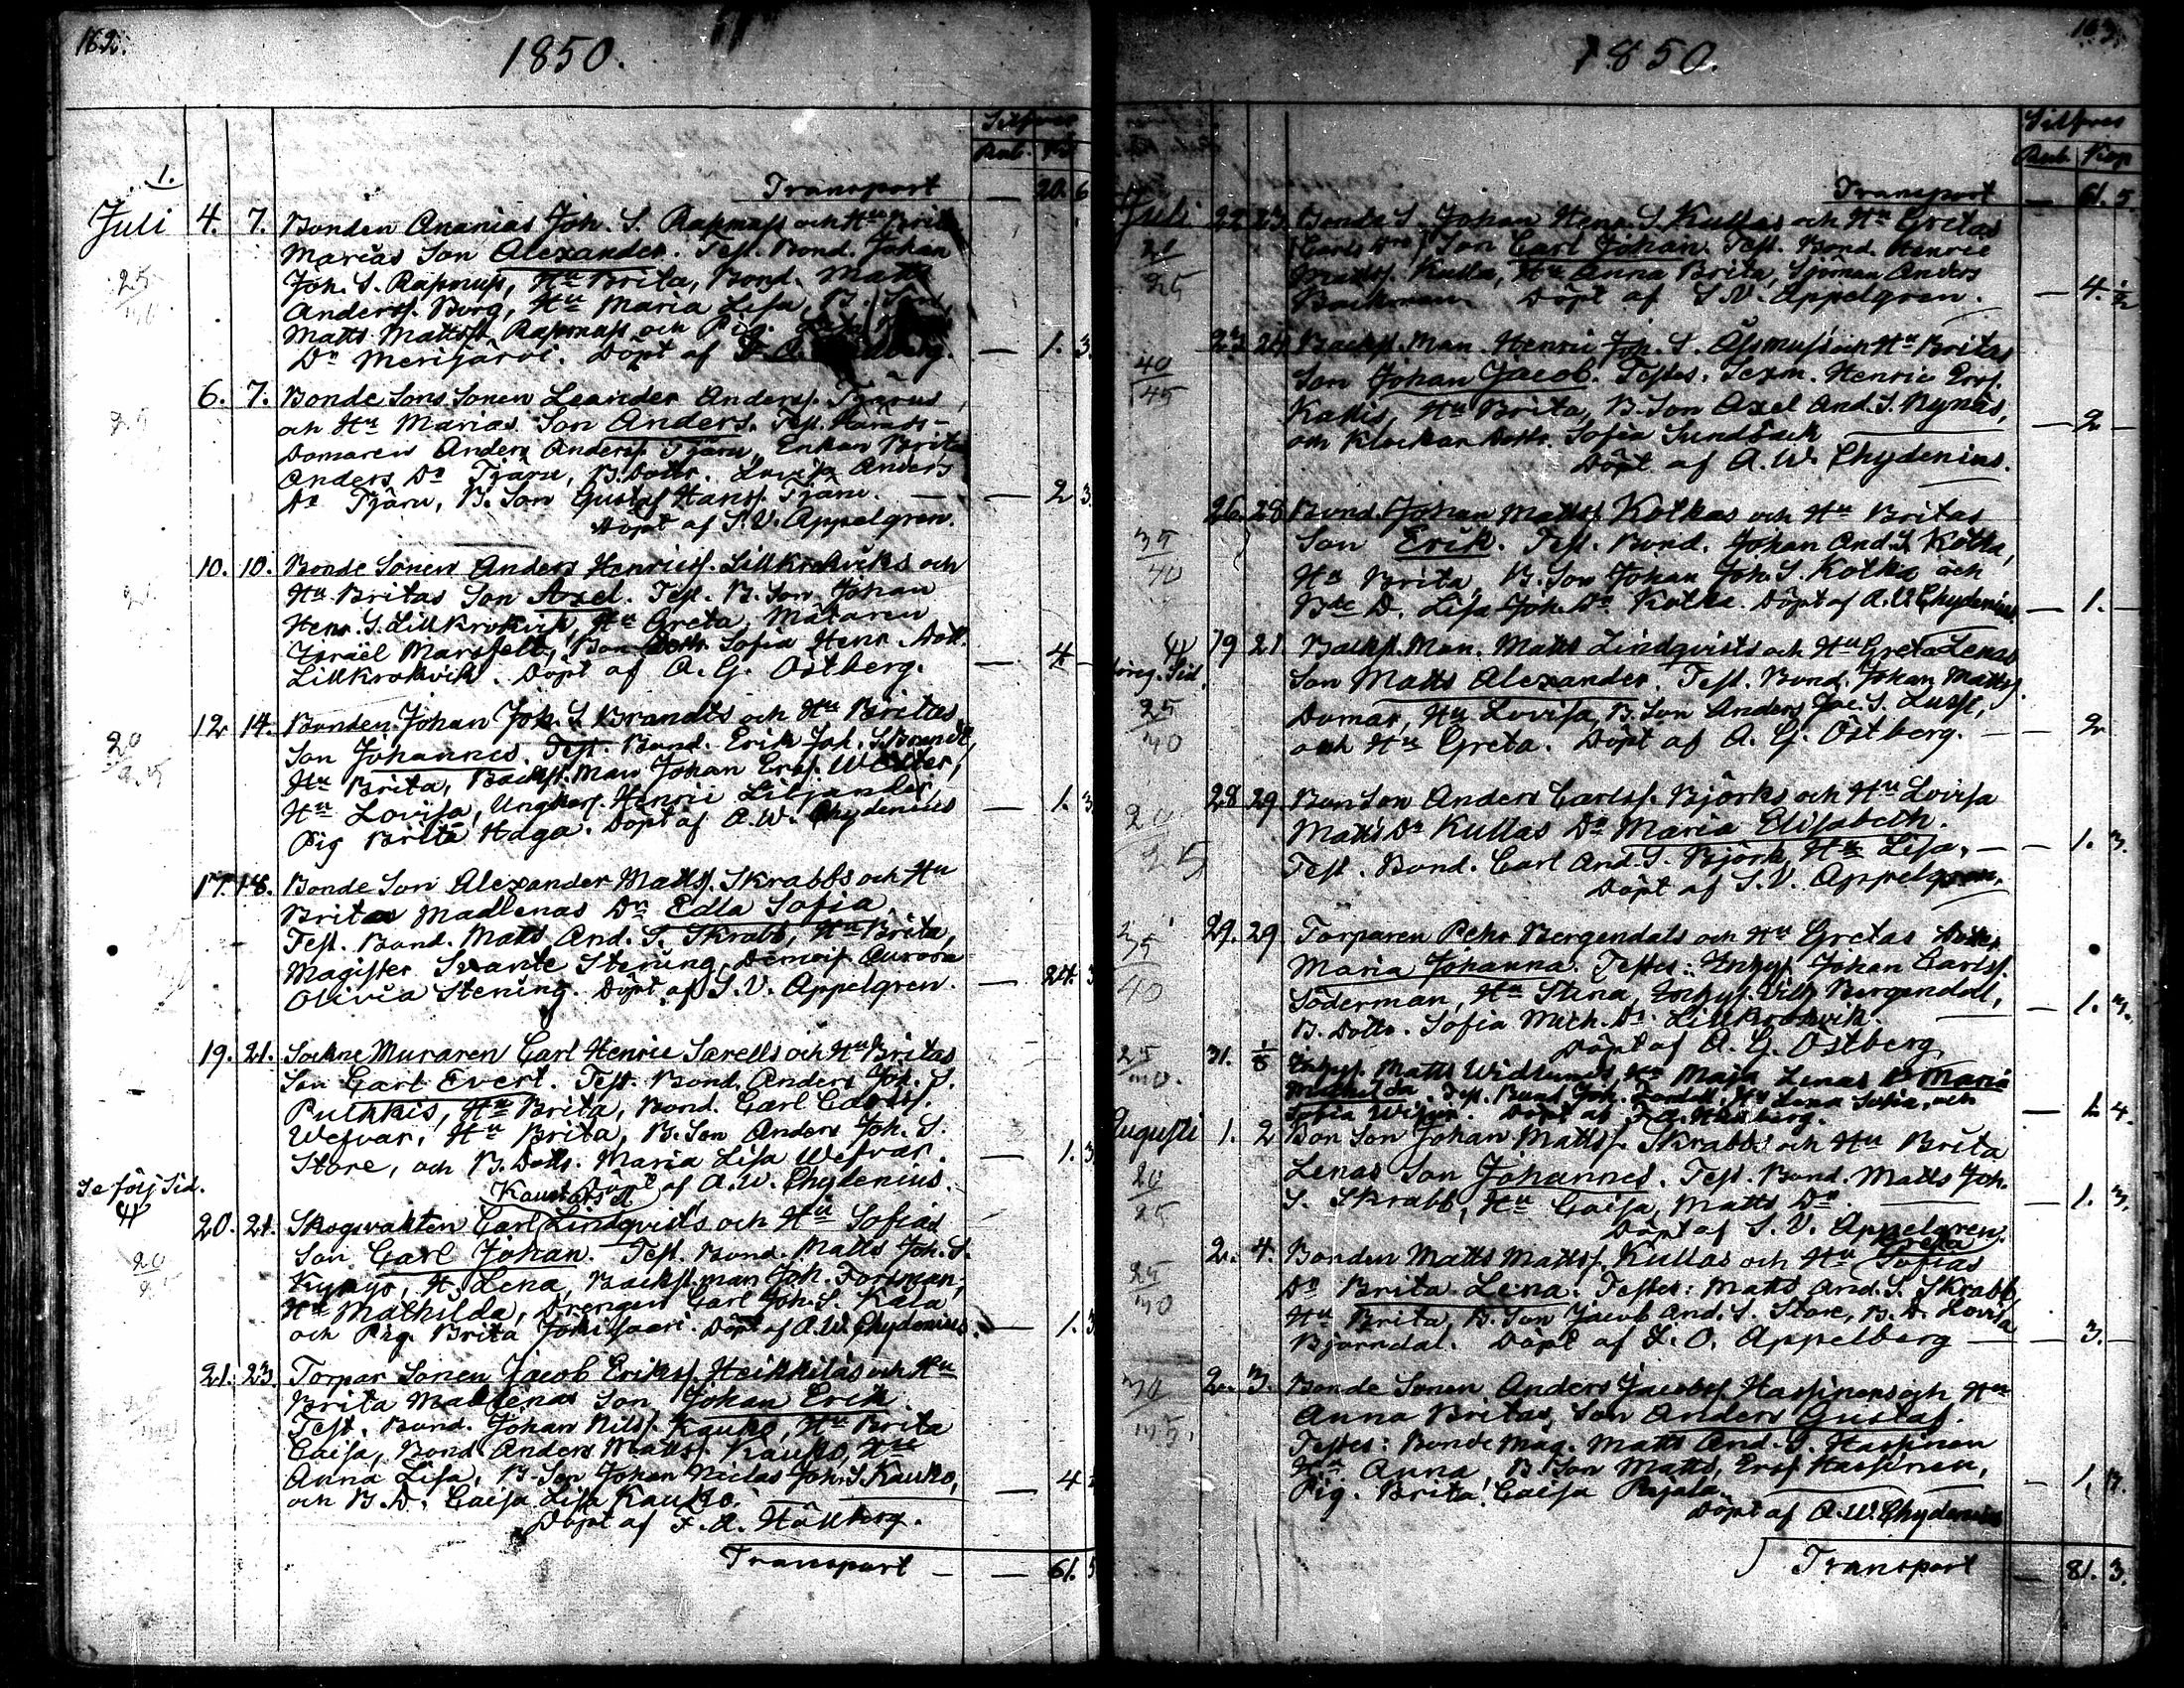 162.
1850.
Silfver
Rub. Kop
1.
Transport — 20. 6
Juli 4. 7. Bonden Ananias Joh. S. Rasmus och Hu Brita
Marias Son Alexander. Test. Bond. Johan
Joh. S. Rasmus, Hu Brita, Bond. Matts
Anderss. Borg, Hu Maria Lisa, B. Son
Matts Mattss. Rasmus och Pig.
Dr Merijärvi. Döpt af — 1. 3.
25
30
6. 7. Bonde Sons Sonen Leander Anderss. Tjärus
och Hu Marias Son Anders. Test. Härads-
Domaren Anders Anderss. Tjäru, Enkan Brita
Anders Dr Tjäru, B. Dottr. Lovisa Anders
Dr Tjäru, B. Son Gustaf Hanss. Tjäru. — 2 3.
Döpt af S. V. Appelgren.
10. 10. Bonde Sonen Anders Henricss. Lillkrokviks och
Hu Britas Son Axel. Test. B. Son Johan
Henr. S. Lillkrokvik, Hu Greta, Mätaren
Israel Marsfelt, Bon Dottr Sofia Henr. Dott.
Lillkrokvik. Döpt af A. G. Östberg. — 4 —
12 14. Bonden Johan Joh. S. Brandts och Hu Britas
Son Johannes. Test. Bond. Erik Joh. S. Brandt,
Hu Brita, Backst. Man Johan Erss. Wester,
Hu Lovisa, Ungkarl. Henric Liljander,
Pig Brita Haga. Döpt af A. W. Chydenius — 1. 3
20
25
17. 18. Bonde Son Alexander Mattss. Skrabbs och Hu
Britas Madlenas Dr Edla Sofia
Test. Bond. Matts And. S. Skrabb, Hu Brita,
Magister Svante Stening, Demois. Aurora
Olivia Stening. Döpt af S. V. Appelgren. — 24. 3
19. 21. Sockne Muraren Carl Henric Sarells och Hu Britas
Son Carl Evert. Test. Bond. Anders Joh. S.
Puckkis, Hu Brita, Bond. Carl Carlss.
Wesvar, Hu Brita, B. Son Anders Joh. S.
Store, och B. Dottr. Maria Lisa Wesvar. — 1. 3
Döpt af A. W. Chydenius.
Se följ Sid.
20. 21. Skogvakten Carl Lindqvists och Hu Sofias
Son Carl Johan. Test. Bond. Matts Joh. S.
Kyrkyo, H. Lena, Backst. man Joh. Forsman,
Hu Mathilda, Drengen Carl Joh. S. Kala
och Pig. Brita Jokitsaari. Döpt af A. W. Chydenius. — 1. 3
20
21. 23. Torpar Sonen Jacob Erikss. Heikkiläs och Hu
Brita Madlenas Son Johan Erik.
Test. Bond. Johan Nilss. Kauko, Hu Brita
Caisa, Bond Anders Mattss. Kauko, Hu
Anna Lisa, B. Son Johan Niclas Joh. S. Kauko,
och B. D. Caisa Lisa Kauko. — 4
Döpt af F. A. Hällberg.
Transport — 61. 5
163.
1850.
Silfver
Rub. Kop
Transport — 61. 5.
Juli 22 23 Bonde S. Johan Henr. S. Kullas och Hu Gretas
(Carls Dr) Son Carl Johan. Test. Bond. Henric
Mattss. Kulla, Hu Anna Brita, Sjöman Anders
Backman. Döpt af S. V. Appelgren. — 4. ½
23 24 Backst. Man Henric Joh. S. Åsmus och Hu Britas
Son Johan Jacob. Testes. Sexm. Henric Erss.
Kallis, Hu Brita, B. Son Axel And. S. Nynäs,
och Klockar Dottr. Sofia Sundbäck — 2 —
Döpt af A. W. Chydenius.
40
45
26. 28 Bond. Johan Mattss. Kotkas och Hu Britas
Son Erik. Test. Bond. Johan And. S. Kotka,
Hu Brita, B. Son Johan Joh. S. Kotka och
Bde D. Lisa Joh. Dr Kotka. Döpt af A. W. Chydenius — 1. —
35
40
19 21 Backst. Man. Matts Lindqvists och Hu Greta Lenas
Son Matts Alexander. Test. Bond. Johan Mattss.
Domar, Hu Lovisa, B. Son Anders Jac. S.
och Hu Greta. Döpt af A. G. Östberg. — 2
föreg. Sid.
25
30
28 29 Bon Son Anders Carlss. Björks och Hu Lovisa
Matts Dr Kullas Dr Maria Elisabeth.
Test. Bond. Carl And. S. Björk, Hu Lisa. — 1. 3.
Döpt af S. V. Appelgren.
20
25
29. 29 Torparen Pehr Bergendals och Hu Gretas Dotter
Maria Johanna. Testes: Inhys. Johan Carlss.
Söderman, Hu Stina, Inhys. Vilh Bergendal,
B. Dottr. Sofia Mich. Dr. Lillkrokvik. — 1. 3.
Döpt af A. G. Östberg
35
40
31. 1/8 Inhys. Matts Widlunds, Hu Maja Lenas Dr Maria
Mathilda. Test. Bond Joh. Hu Lena Sofia, och
Sofia Döpt af F. A. Hällberg. — 1. 4.
25
30.
Augusti 1. 2 Bon Son Johan Mattss. Skrabbs och Hu Brita
Lenas Son Johannes. Test. Bond. Matts Joh.
S. Skrabb, Hu Caisa Matts Dr — 1. 3.
Döpt af S. V. Appelgren.
20
25
2. 4. Bonden Matts Mattss. Kullas och Hu Greta Sofias
Dr Brita Lena. Testes: Matts And. S. Skrabb,
Hu Brita, B. Son Jacob And. S. Store, B. D. Lovisa
Björndal. Döpt af F. O. Appelberg — 3. —
25
30
2. 3. Bonde Sonen Anders Jacobss. Hassinens och Hu
Anna Britas, Son Anders Gustaf.
Testes: Bonde Måg. Matts And. S. Hassinen
Hu Anna, B. Son Matts, Erss. Hassinen,
Pig. Brita Caisa Rajala. — 1. 3.
Döpt af A. W. Chydenius
30
35.
Transport — 81. 3.